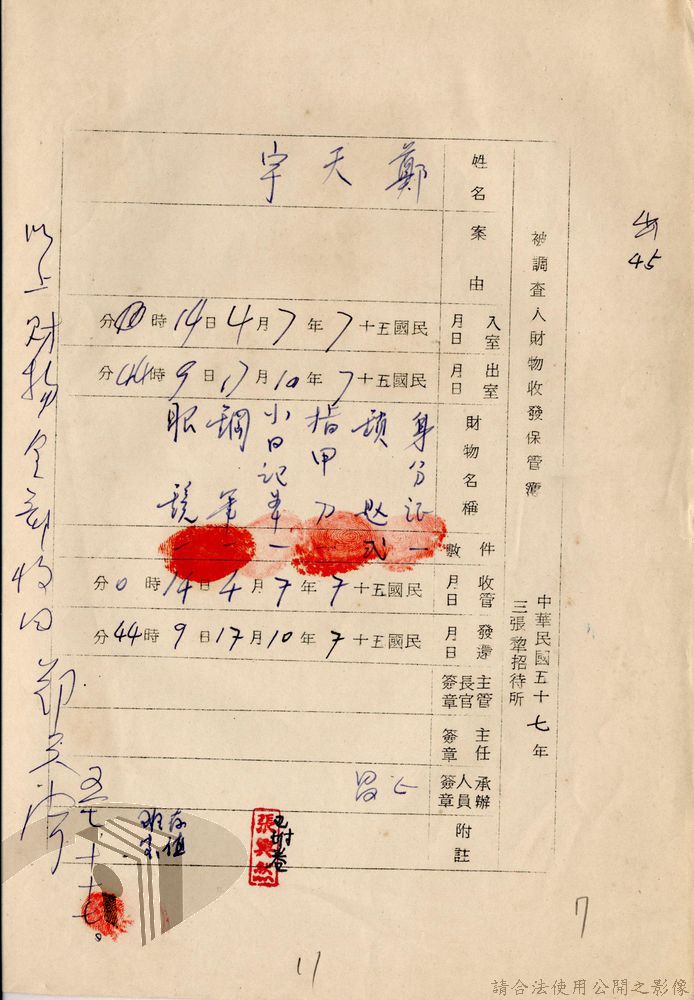 45
被調查人財物收發保管簿
中華民國五十七年
三張犂招待所
姓名
鄭天宇
案由
入室月日
民國五十7年7月4日14時0分
出室月日
民國五十7年10月17日9時44分
財物名稱
身分証
鎖匙
指甲刀
小日記本
鋼筆
眼鏡
件數
一
弍
一
一
一
一
收管月日
民國五十7年7月4日14時0分
發還月日
民國五十7年10月17日9時44分
主管長官簽章
主任簽章
承辦人員簽章
附註
張興然
以上財物全部收回
五七、十、十七。
7
11
請合法使用公開之影像